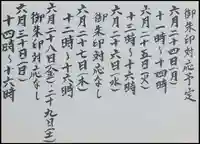 御朱印対応予定
六月二十四日(月)
十一時〜十四時
六月二十五日(火)
十三時〜十六時
六月二十六日(水)
御朱印対応なし
六月二十七日(木)
十二時〜十六時
六月二十八日(金)・二十九日(土)
御朱印対応なし
六月三十日(日)
十四時〜十六時